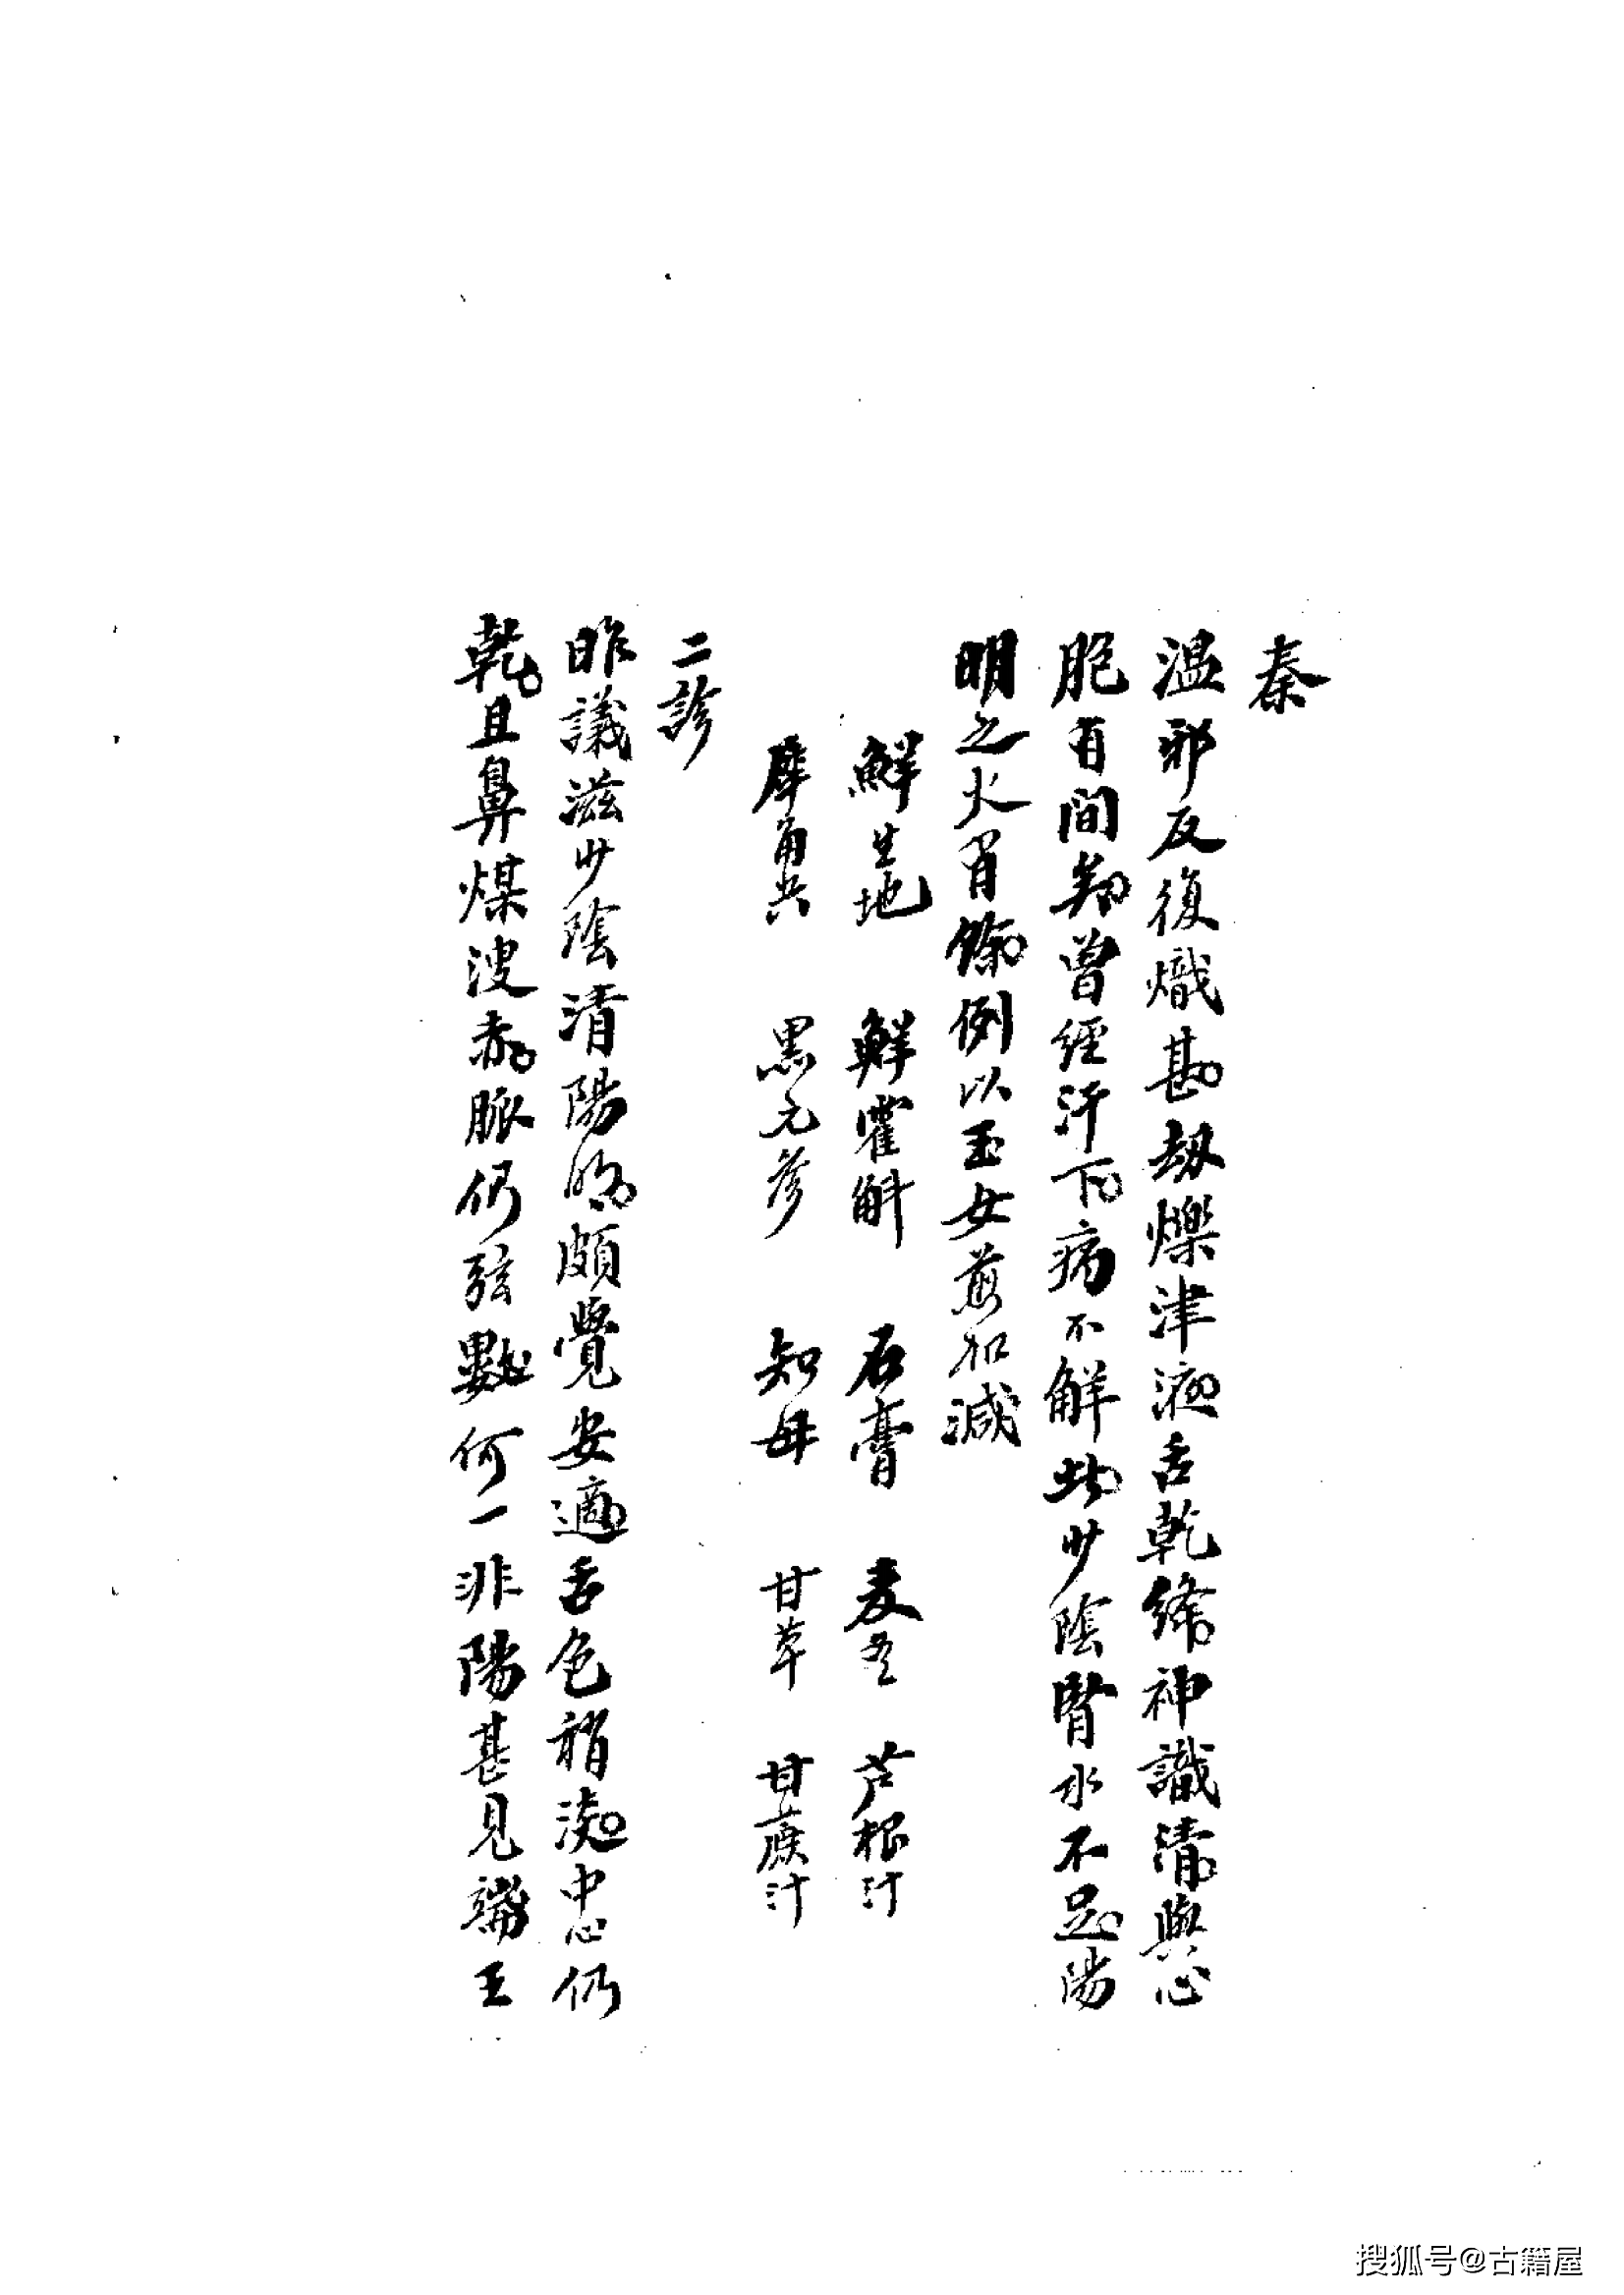 秦
温邪反復熾甚劫爍津液舌乾絳神識清與心
胞有間矣曾經汗下病不解此少陰腎水不足陽
明之火有餘例以玉女煎加減
鮮生地　鮮霍斛　石膏　麦冬　芦根汁
犀角尖　黒元参　知母　甘草　甘蔗汁
二診
昨議滋少陰清陽明頗覺安適舌色稍淡中心仍
乾且鼻煤溲赤脈仍弦數何一非陽甚見端王
搜狐号@古籍屋